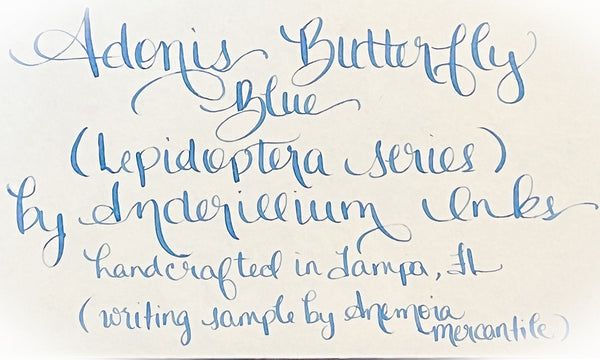 Adonis Butterfly
Blue
(Lepidoptera series)
by Anderillium Inks
handcrafted in Tampa, FL
(writing sample by Anemoia
mercantile)